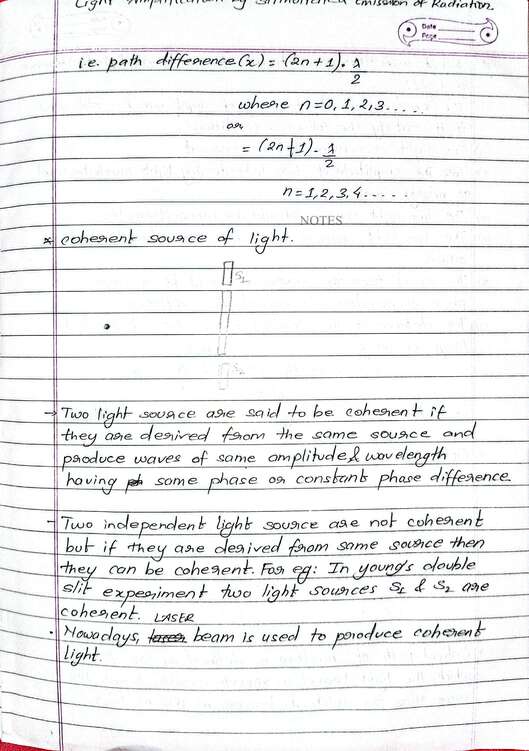 Light Amplification by Stimulated Emission of Radiation.
Date
Page
i.e. path difference (x) = (2n+1). λ/2
where n=0, 1, 2, 3.....
or
= (2n+1). λ/2
n=1, 2, 3, 4.....
NOTES
* coherent source of light.
S1
S2
→ Two light source are said to be coherent if
they are derived from the same source and
produce waves of same amplitude & wavelength
having same phase or constant phase difference.
- Two independent light source are not coherent
but if they are derived from same source then
they can be coherent. For eg: In young's double
slit experiment two light sources S1 & S2 are
coherent.
• Nowadays, LASER beam is used to produce coherent
light.